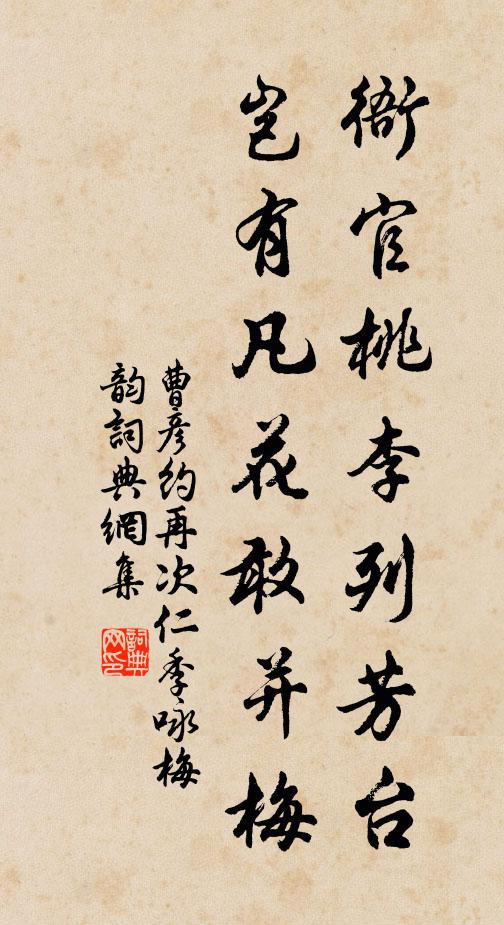 衙官桃李列芳台
岂有凡花敢并梅
曹彦约再次仁季咏梅
韵词典网集
词典网印